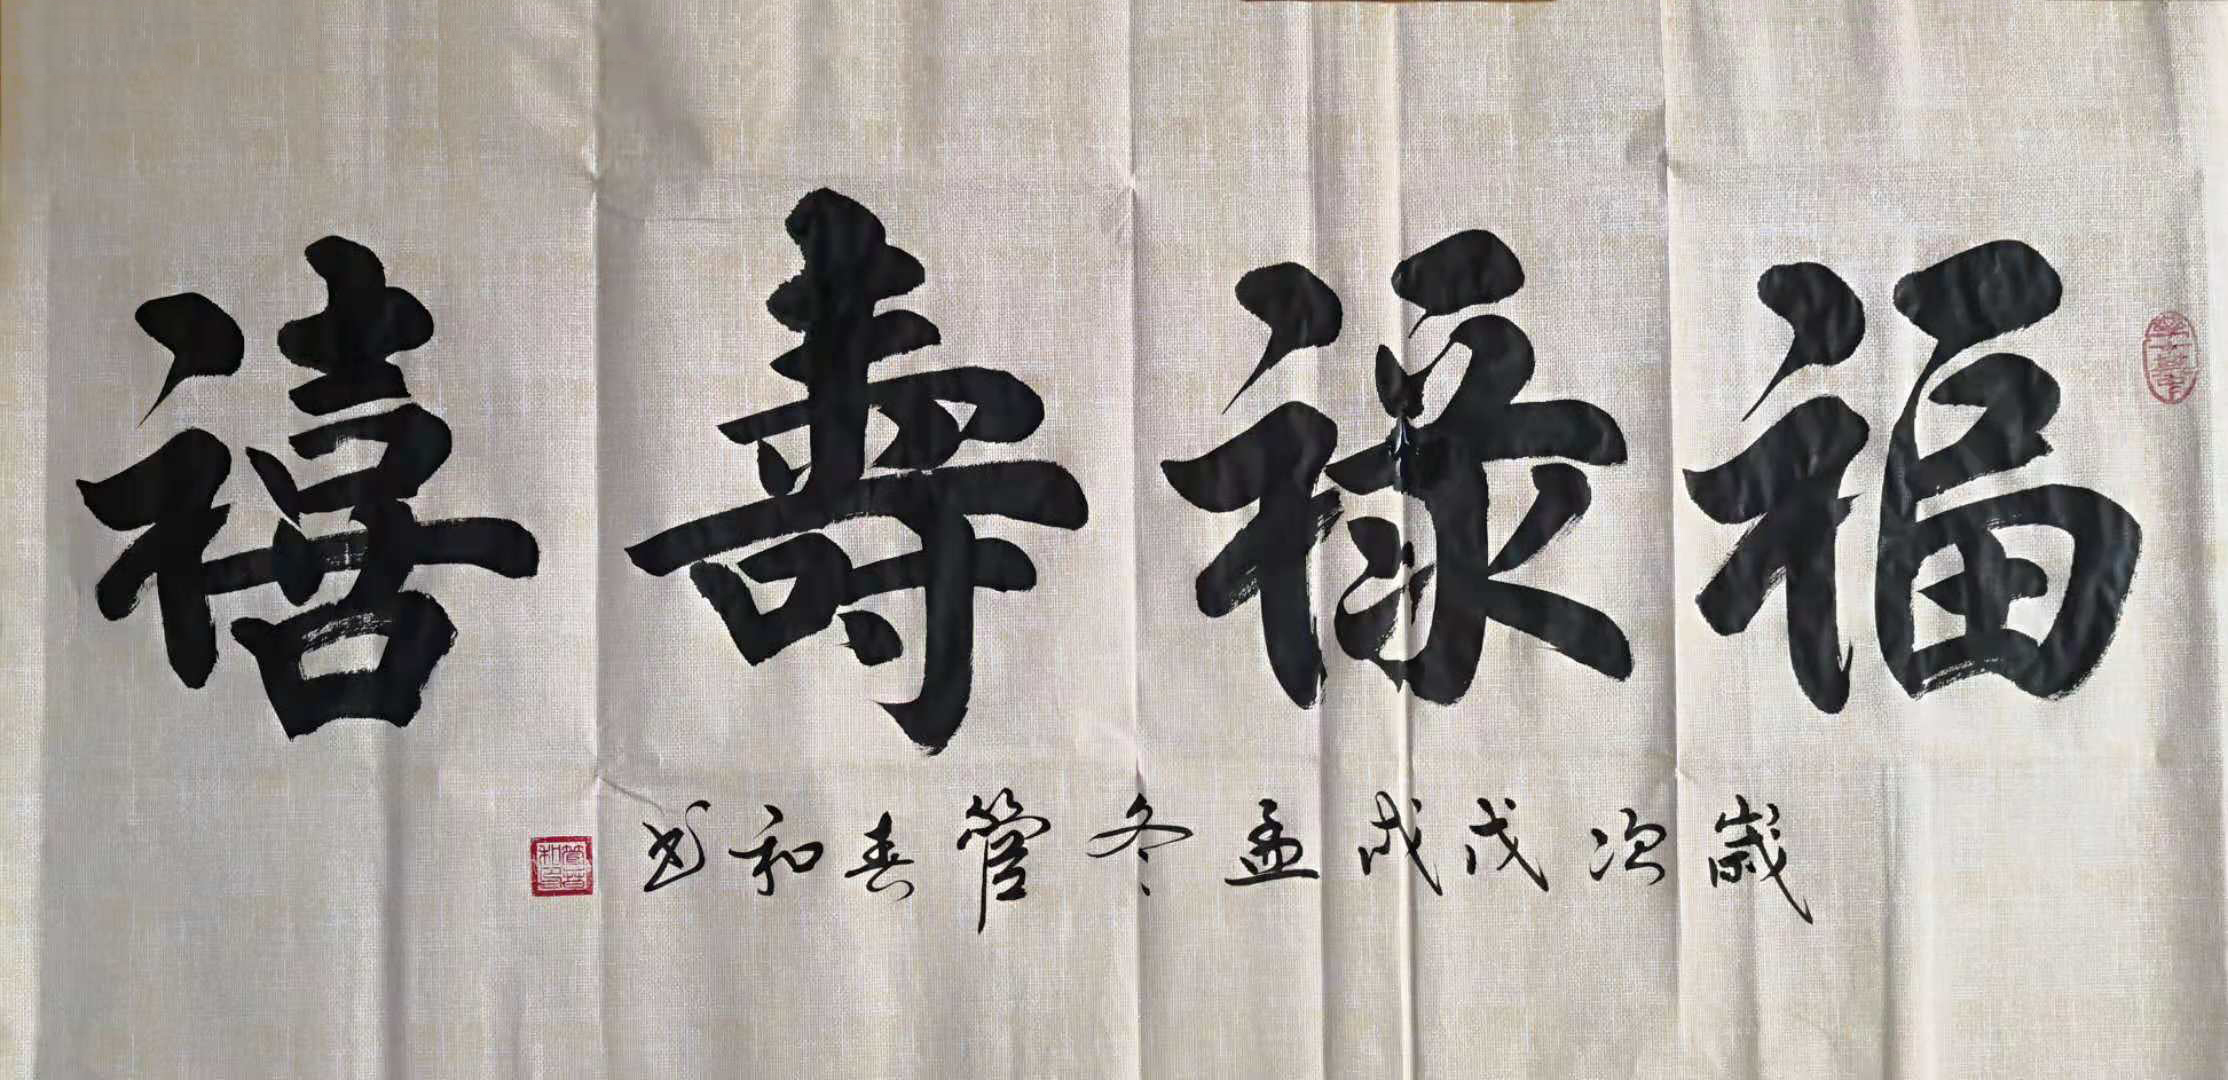 福禄寿禧
歳次戊戌孟冬管春和书